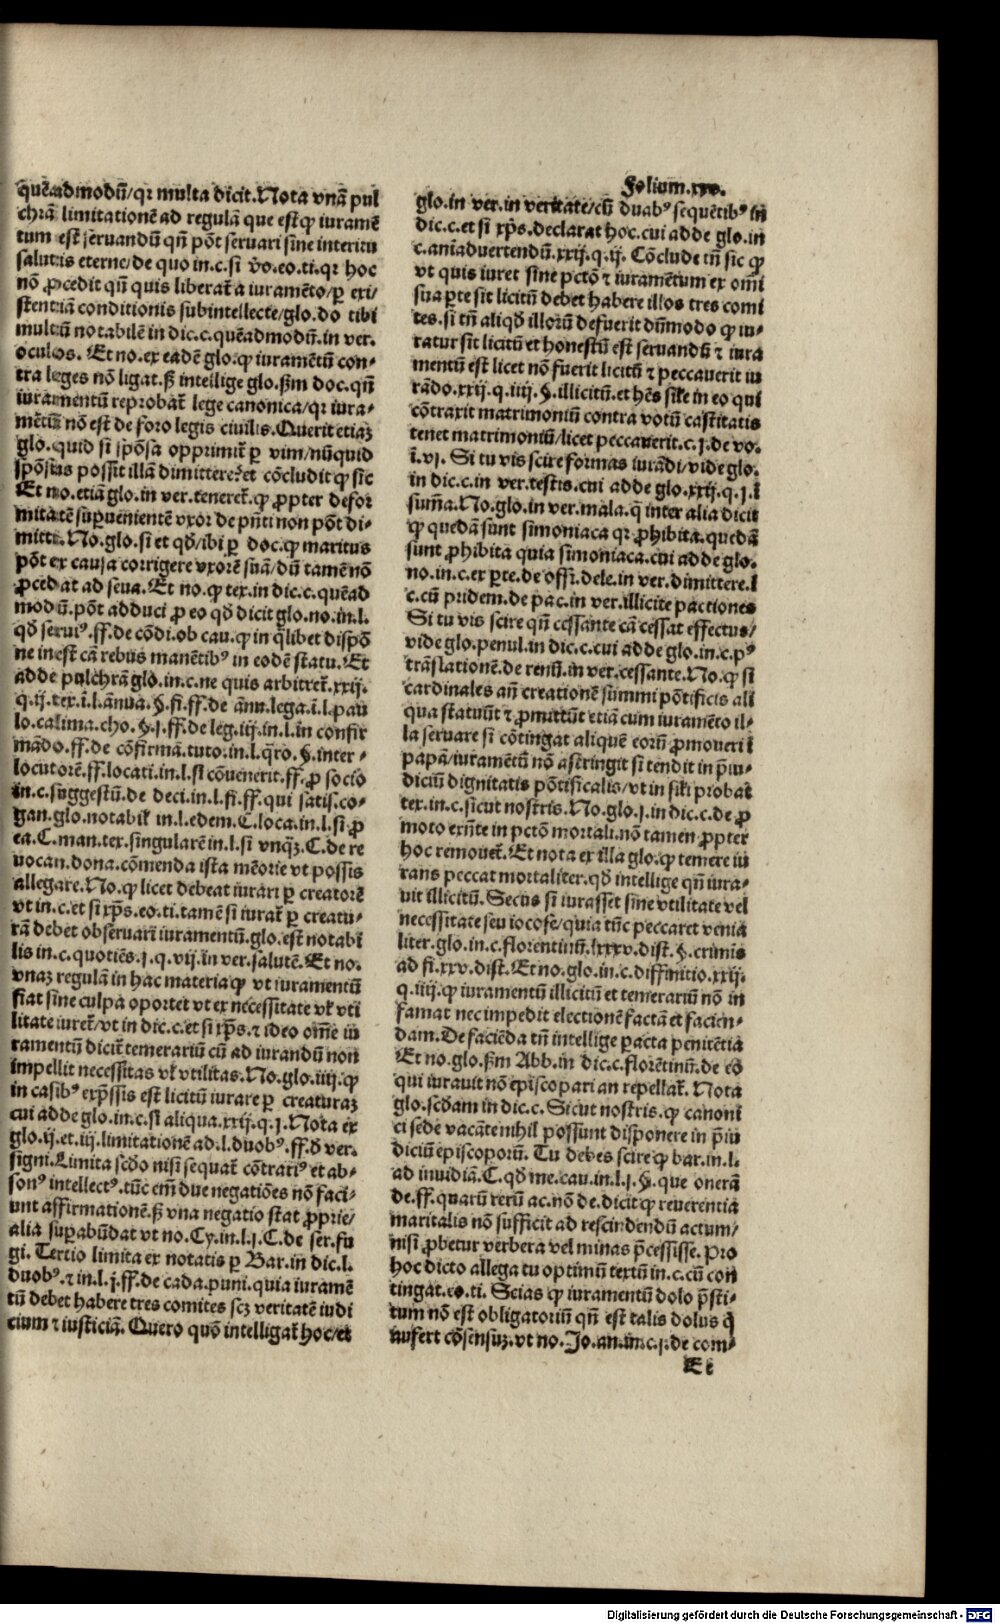 Folium.xxv.
quẽadmodũ/qꝛ multa dicit.Nota vnã pul
chrã limitationẽ ad regulã que est ꝙ iuramẽ
tum est seruandũ qñ põt seruari sine interitu
salutis eterne/de quo in.c.si vo.eo.ti.qꝛ hoc
nõ ꝓcedit qñ quis liberat᷑ a iuramẽto/ꝑ exi/
stentiã conditionis subintellecte/glo.do tibi
multũ notabilẽ in dic.c.quẽadmodũ.in ver.
oculos. Et no.ex eadẽ glo.ꝙ iuramẽtũ con-
tra leges nõ ligat.sꝫ intellige glo.ẞm doc.qñ
iuramentũ reprobat᷑ lege canonica/qꝛ iura-
mẽtũ nõ est de foro legis ciuilis.Querit etiaꝫ
glo.quid si spõsa opprimit᷑ ꝑ vim/nũquid
spõsus possit illã dimittere?et cõcludit ꝙ sic
Et no.etiã glo.in ver.teneret᷑.ꝙ ꝓpter defor
mitatẽ suꝑuenientẽ vxor de pñti non põt di-
mitti.No.glo.si et qđ/ibi ꝑ doc.ꝙ maritus
põt ex causa corrigere vxorẽ suã/dũ tamẽ nõ
ꝓcedat ad seua.Et no.ꝙ tex.in dic.c.quẽad
modũ.põt adduci ꝓ eo qđ dicit glo.no.in.l.
qđ seruiꝰ.ff.de cõdi.ob cau.ꝙ in qͥlibet dispõ
ne inest cã rebus manẽtibꝰ in eodẽ statu.Et
adde pulchrã glo.in.c.ne quis arbitret᷑.xxij.
q.ij.tex.ĩ.l.ãnua.§.fi.ff.de ãnu.lega.ĩ.l.pau
lo.calima.cho.§.j.ff.de leg.iij.in.l.in confir
mãdo.ff.de cõfirmã.tuto.in.l.qͥro.§.inter-
locutorẽ.ff.locati.in.l.si cõuenerit.ff.ꝓ socio
in.c.suggestũ.de deci.in.l.fi.ff.qui satis.co-
gan.glo.notabil᷑ in.l.edem.C.loca.in.l.si ꝓ
ea.C.man.tex.singularẽ in.l.si vnqꝫ.C.de re
uocan.dona.cõmenda ista mẽorie vt possis
allegare.No.ꝙ licet debeat iurari ꝑ creatorẽ
vt in.c.et si xp̃s.eo.ti.tamẽ si iurat᷑ ꝑ creatu-
rã debet obseruari iuramentũ.glo.est notabi
lis in.c.quotiẽs.j.q.vij.in ver.salutẽ.Et no.
vnaꝫ regulã in hac materia ꝙ vt iuramentũ
fiat sine culpa oportet vt ex necessitate vl᷑ vti
litate iuret᷑/vt in dic.c.et si xp̃s.⁊ ideo om̃e iu
ramentũ dicit᷑ temerariũ cũ ad iurandũ non
impellit necessitas vl᷑ vtilitas.No.glo.iiij.ꝙ
in casibꝰ exp̃ssis est licitũ iurare ꝑ creaturaꝫ
cui adde glo.in.c.si aliqua.xxij.q.j.Nota ex
glo.ij.et.iij.limitationẽ ad.l.duobꝰ.ff.đ ver.
signi.Limita scđo nisi sequat᷑ cõtrariꝰ et ab-
sonꝰ intellectꝰ.tũc em̃ due negatiões nõ faci-
unt affirmationẽ.sꝫ vna negatio stat ꝓprie/
alia suꝑabũdat vt no.Cy.in.l.j.C.de ser.fu
gi. Tertio limita ex notatis ꝑ Bar.in dic.l.
duobꝰ.⁊ in.l.j.ff.de cada.puni.quia iuramẽ
tũ debet habere tres comites scꝫ veritatẽ iudi
cium ⁊ iusticiã.Quero quõ intelligat᷑ hoc/et
glo.in ver.in veritate/cũ duabꝰ sequẽtibꝰ in
dic.c.et si xp̃s.declarat hoc.cui adde glo.in
c.anĩaduertendũ.xxij.q.ij. Cõclude tñ sic ꝙ
vt quis iuret sine pctõ ⁊ iuramẽtum ex om̃i
sua ꝑte sit licitũ debet habere illos tres comi
tes.si tñ aliqđ illorũ defuerit dũmodo ꝙ iu-
ratur sit licitũ et honestũ est seruandũ ⁊ iura
mentũ est licet nõ fuerit licitũ ⁊ peccauerit iu
rãdo.xxij.q.iiij.§.illicitũ.et hẽs sil᷑e in eo qui
cõtraxit matrimoniũ contra votũ castitatis
tenet matrimoniũ/licet peccauerit.c.j.de vo.
ĩ.vj. Si tu vis scire formas iurãdi/vide glo.
in dic.c.in ver.testis.cui adde glo.xxij.q.j.ĩ
sum̃a.No.glo.in ver.mala.q̃ inter alia dicit
ꝙ quedã sunt simoniaca qꝛ ꝓhibita.quedã
sunt ꝓhibita quia simoniaca.cui adde glo.
no.in.c.ex ꝑte.de offi.dele.in ver.dimittere.ĩ
c.cũ pridem.de pac.in ver.illicite pactiones
Si tu vis scire qñ cessante cã cessat effectus/
vide glo.penul.in dic.c.cui adde glo.in.c.pꝰ
trãslationẽ.de renũ.in ver.cessante.No.ꝙ si
cardinales añ creationẽ summi põtificis ali
qua statuũt ⁊ ꝓmittũt etiã cum iuramẽto il-
la seruare si cõtingat aliquẽ eorũ ꝓmoueri ĩ
papã/iuramẽtũ nõ astringit si tendit in p̃iu-
diciũ dignitatis põtificalis/vt in sil᷑i probat᷑
tex.in.c.sicut nostris.No.glo.j.in dic.c.de ꝓ
moto exñte in pctõ mortali.nõ tamen ꝓpter
hoc remouet᷑.Et nota ex illa glo.ꝙ temere iu
rans peccat mortaliter.qđ intellige qñ iura-
uit illicitũ.Secus si iurasset sine vtilitate vel
necessitate seu iocose/quia tũc peccaret venia
liter.glo.in.c.florentinũ.lxxxv.dist.§.crimis
ad fi.xxv.dist.Et no.glo.in.c.diffinitio.xxij.
q.iiij.ꝙ iuramentũ illicitũ et temerariũ nõ in
famat nec impedit electionẽ factã et facien-
dam.De faciẽda tñ intellige ꝑacta penitẽtia
Et no.glo.ẞm Abb.in dic.c.florẽtinũ.de eo
qui iurauit nõ episcopari an repellat᷑. Nota
glo.scđam in dic.c. Sicut nostris.ꝙ canoni
ci sede vacãte nihil possunt disponere in p̃iu
diciũ episcoporũ. Tu debes scire ꝙ bar.in.l.
ad inuidiã.C.qđ me.cau.in.l.j.§.que onerã
de.ff.quarũ rerũ ac.nõ de.dicit ꝙ reuerentia
maritalis nõ sufficit ad rescindendũ actum/
nisi ꝓbetur verbera vel minas p̃cessisse. Pro
hoc dicto allega tu optimũ textũ in.c.cũ con
tingat.eo.ti. Scias ꝙ iuramentũ dolo p̃sti-
tum nõ est obligatoriũ qñ est talis dolus q̃
aufert cõsensuꝫ.vt no.Jo.an.in.c.j.de com-
Et
Digitalisierung gefördert durch die Deutsche Forschungsgemeinschaft - DFG